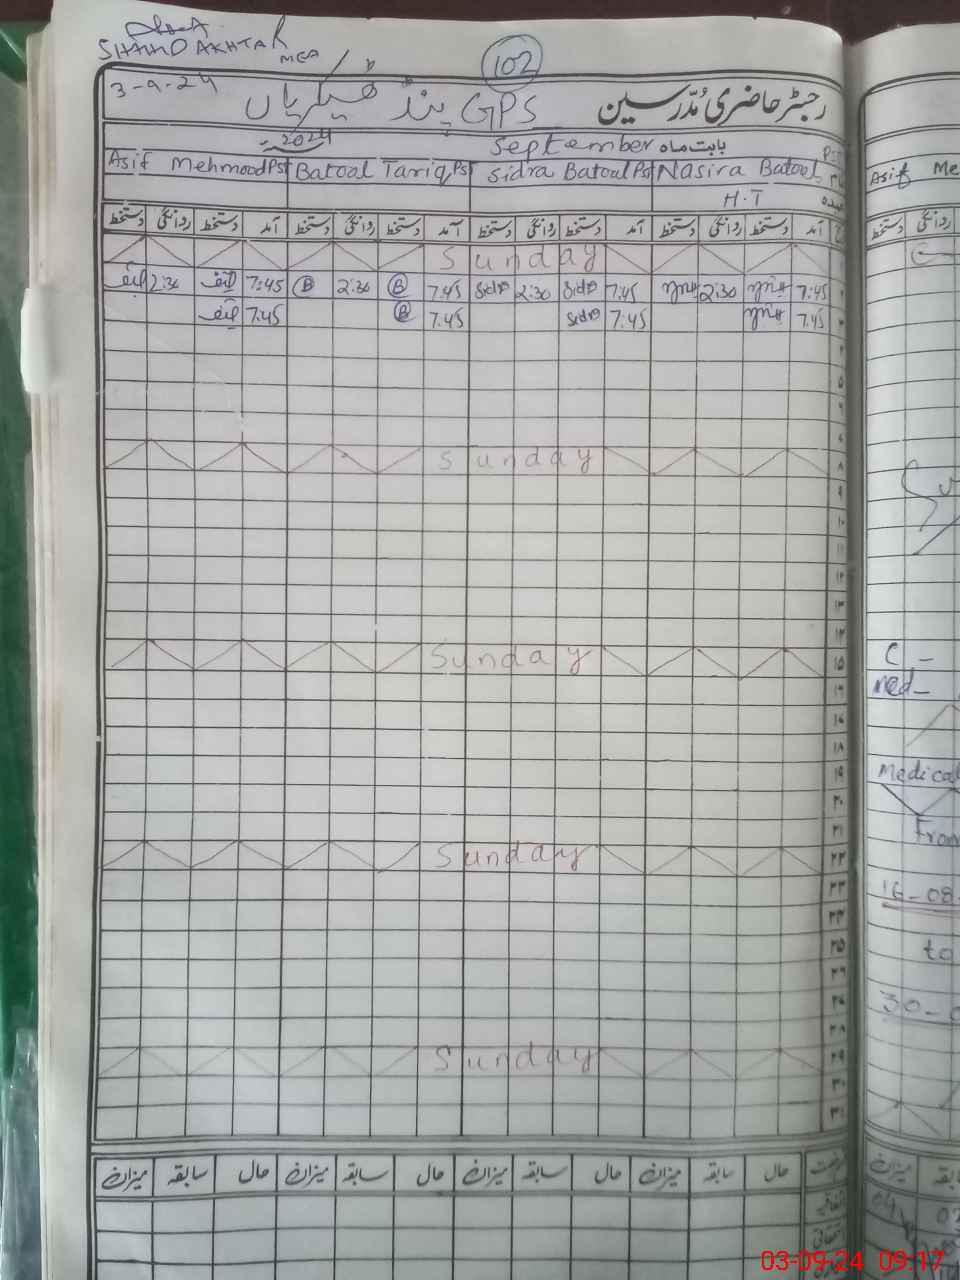 SHAHID AKHTAR
MEA
102
3-9-24
رجسٹر حاضری مُدرسین GPS پنڈ ٹھیکریاں
بابت ماہ September 2024
Nasira Batool Sidra Batoal Pst Batoal Tariq Pst Asif Mehmood Pst
H.T
آمد دستخط روانگی دستخط آمد دستخط روانگی دستخط آمد دستخط روانگی دستخط آمد دستخط روانگی دستخط
Sunday
7:45 2:30 7:45 Sidra 2:30 Sidra 7:45 B 2:30 B 7:45 2:30
۳ 7:45 7:45 Sidra 7:45 B 7:45
۴
۵
۶
۷
۸ Sunday
۹
۱۰
۱۱
۱۲
۱۳
۱۴
۱۵ Sunday
۱۶
۱۷
۱۸
۱۹
۲۰
۲۱
۲۲ Sunday
۲۳
۲۴
۲۵
۲۶
۲۷
۲۸
۲۹ Sunday
۳۰
۳۱
حال سابقہ میزان حال سابقہ میزان حال سابقہ میزان حال سابقہ میزان
Asif Me
دستخط
C -
Med-
Medical
From
16-08-
to
30-0
میزان
04 02
03-09-24 09:17